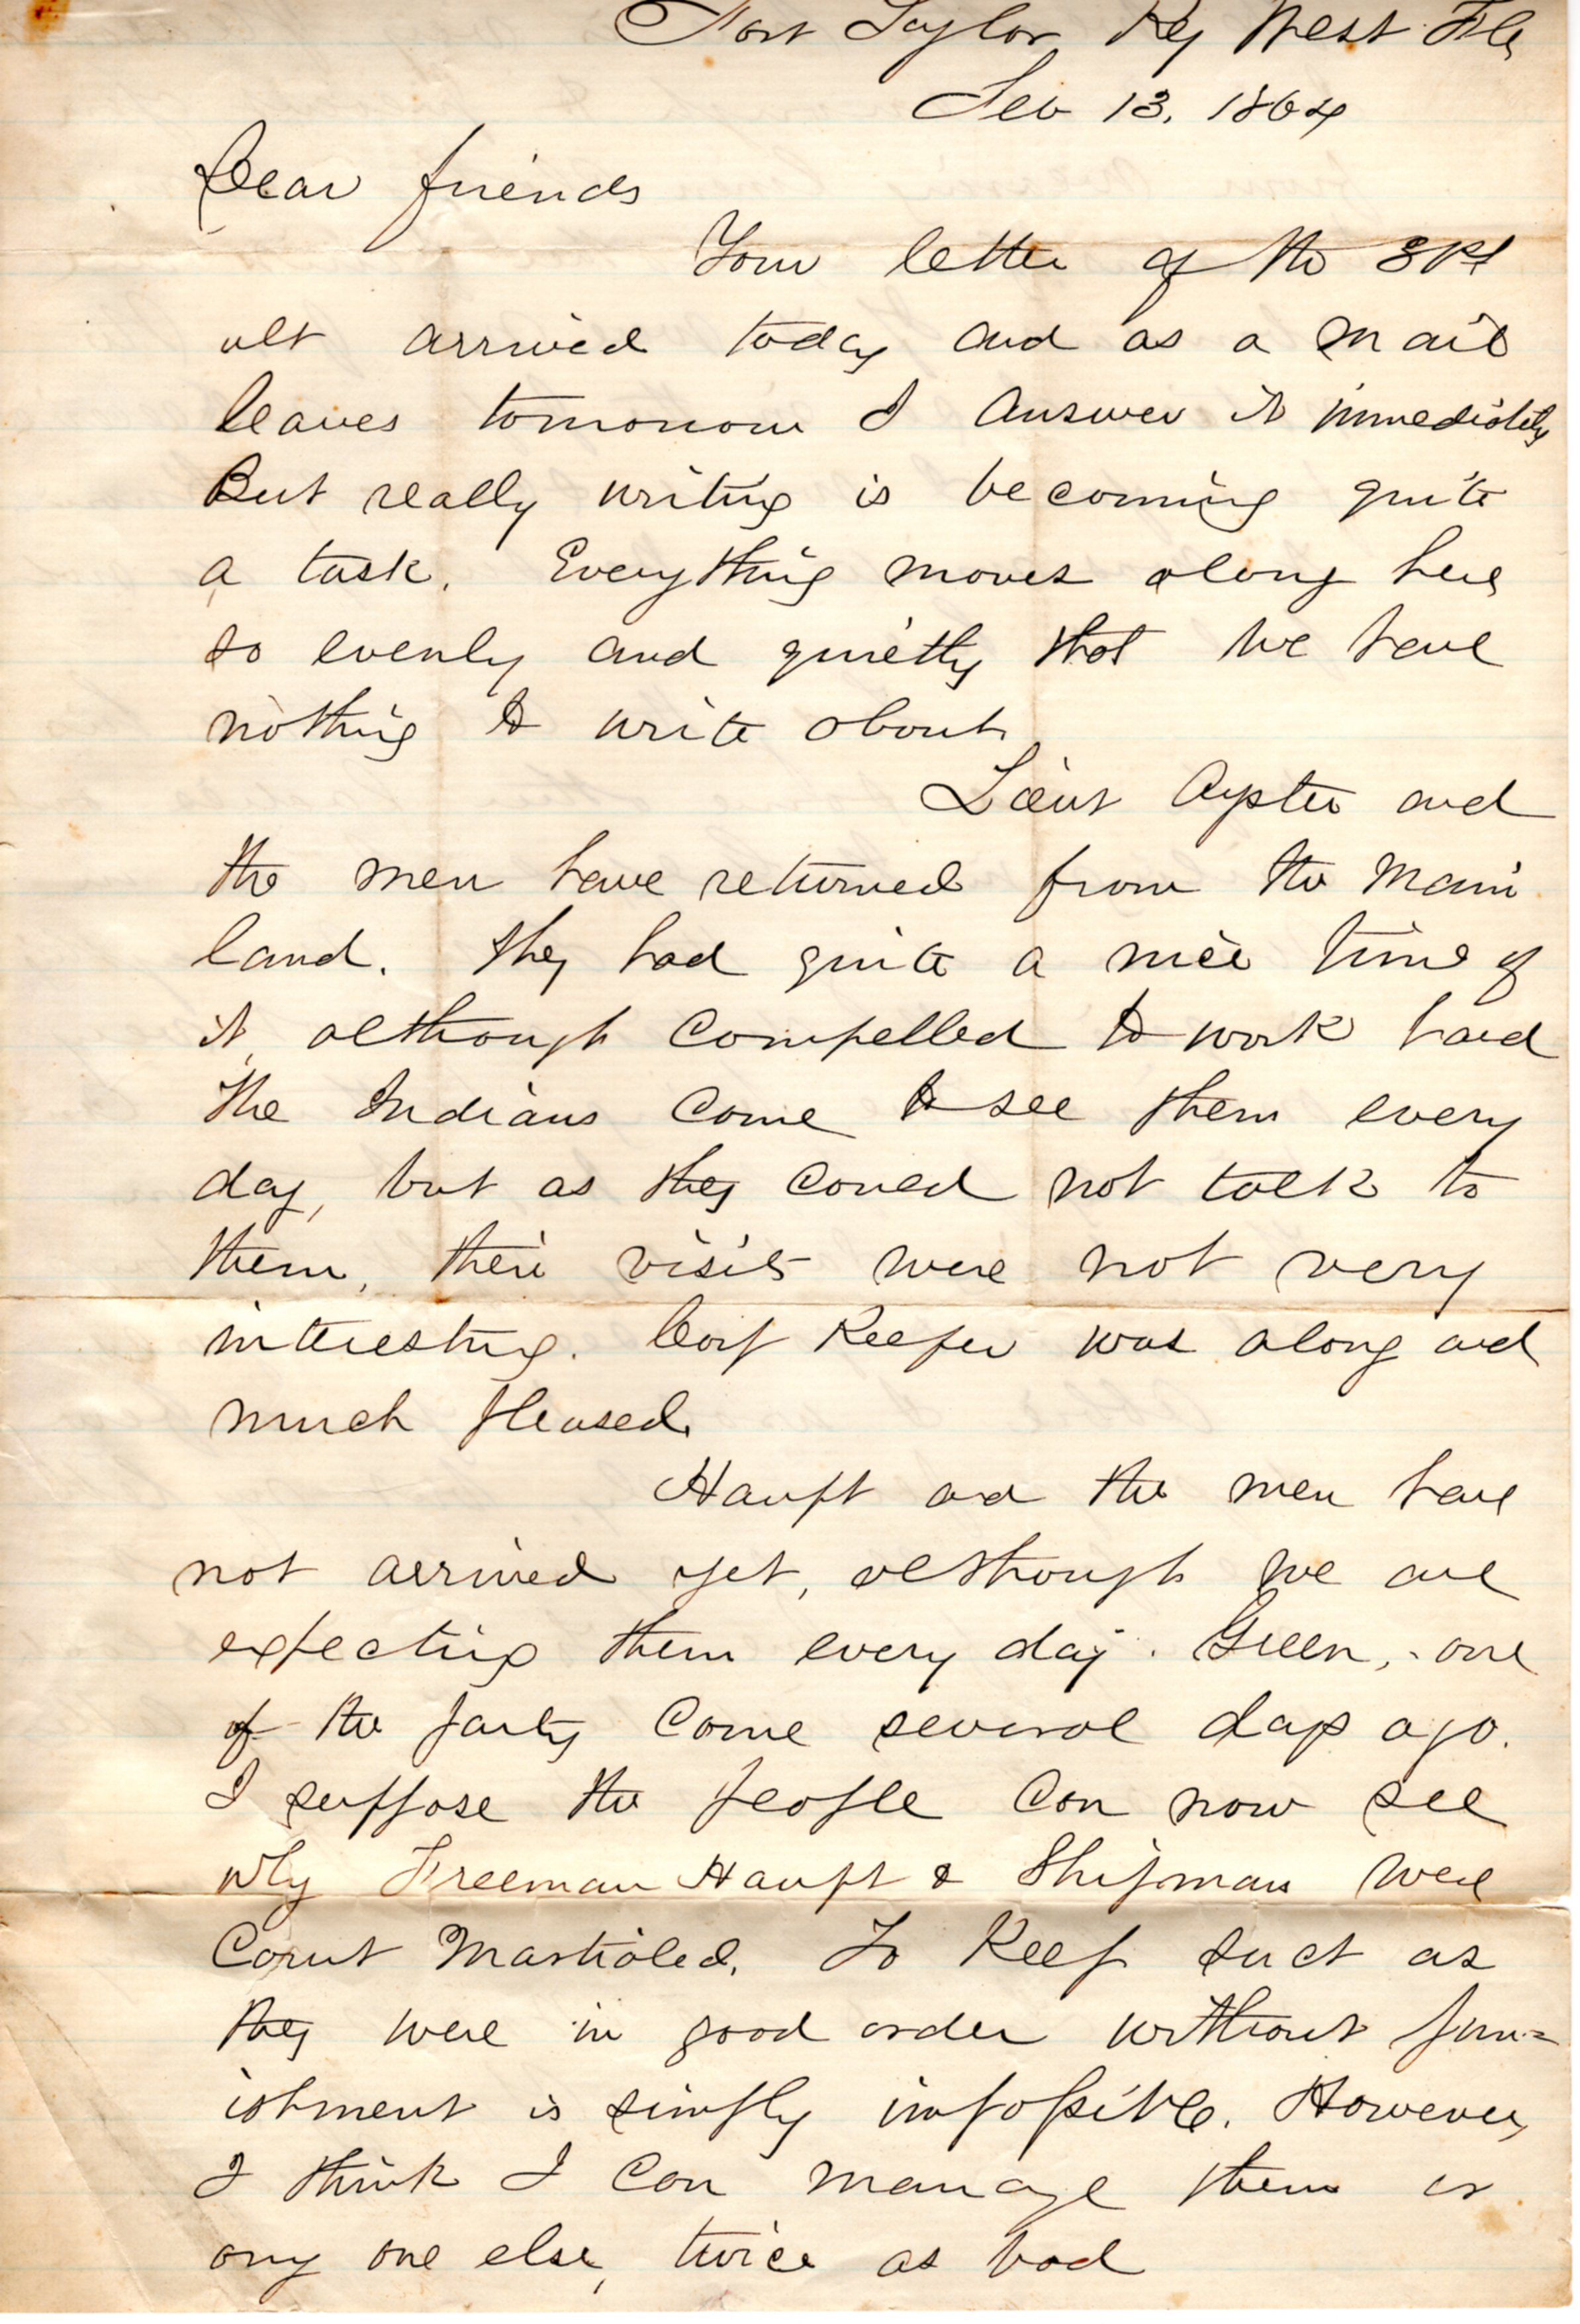 Fort Taylor Key West Fla
Feb 13. 1864
Dear friends
Your letter of the 31st
ult arrived today and as a mail
leaves tomorrow I answer it immediately
But really writing is becoming quite
a task. Everything moves along here
so evenly and quietly that we have
nothing to write about
Lieut Oyster and
the men have returned from the main
land. They had quite a nice time of
it, although compelled to work hard
The Indians come to see them every
day, but as they could not talk to
them, their visits were not very
interesting. Corp Keefer was along and
much pleased.
Haupt and the men have
not arrived yet, although we are
expecting them every day. Green, one
of the party come several days ago.
I suppose the people can now see
why Freeman Haupt & Shipman were
Court Martialed. To keep such as
they were in good order without pun=
ishment is simply impossible. However,
I think I can manage them or
any one else, twice as bad